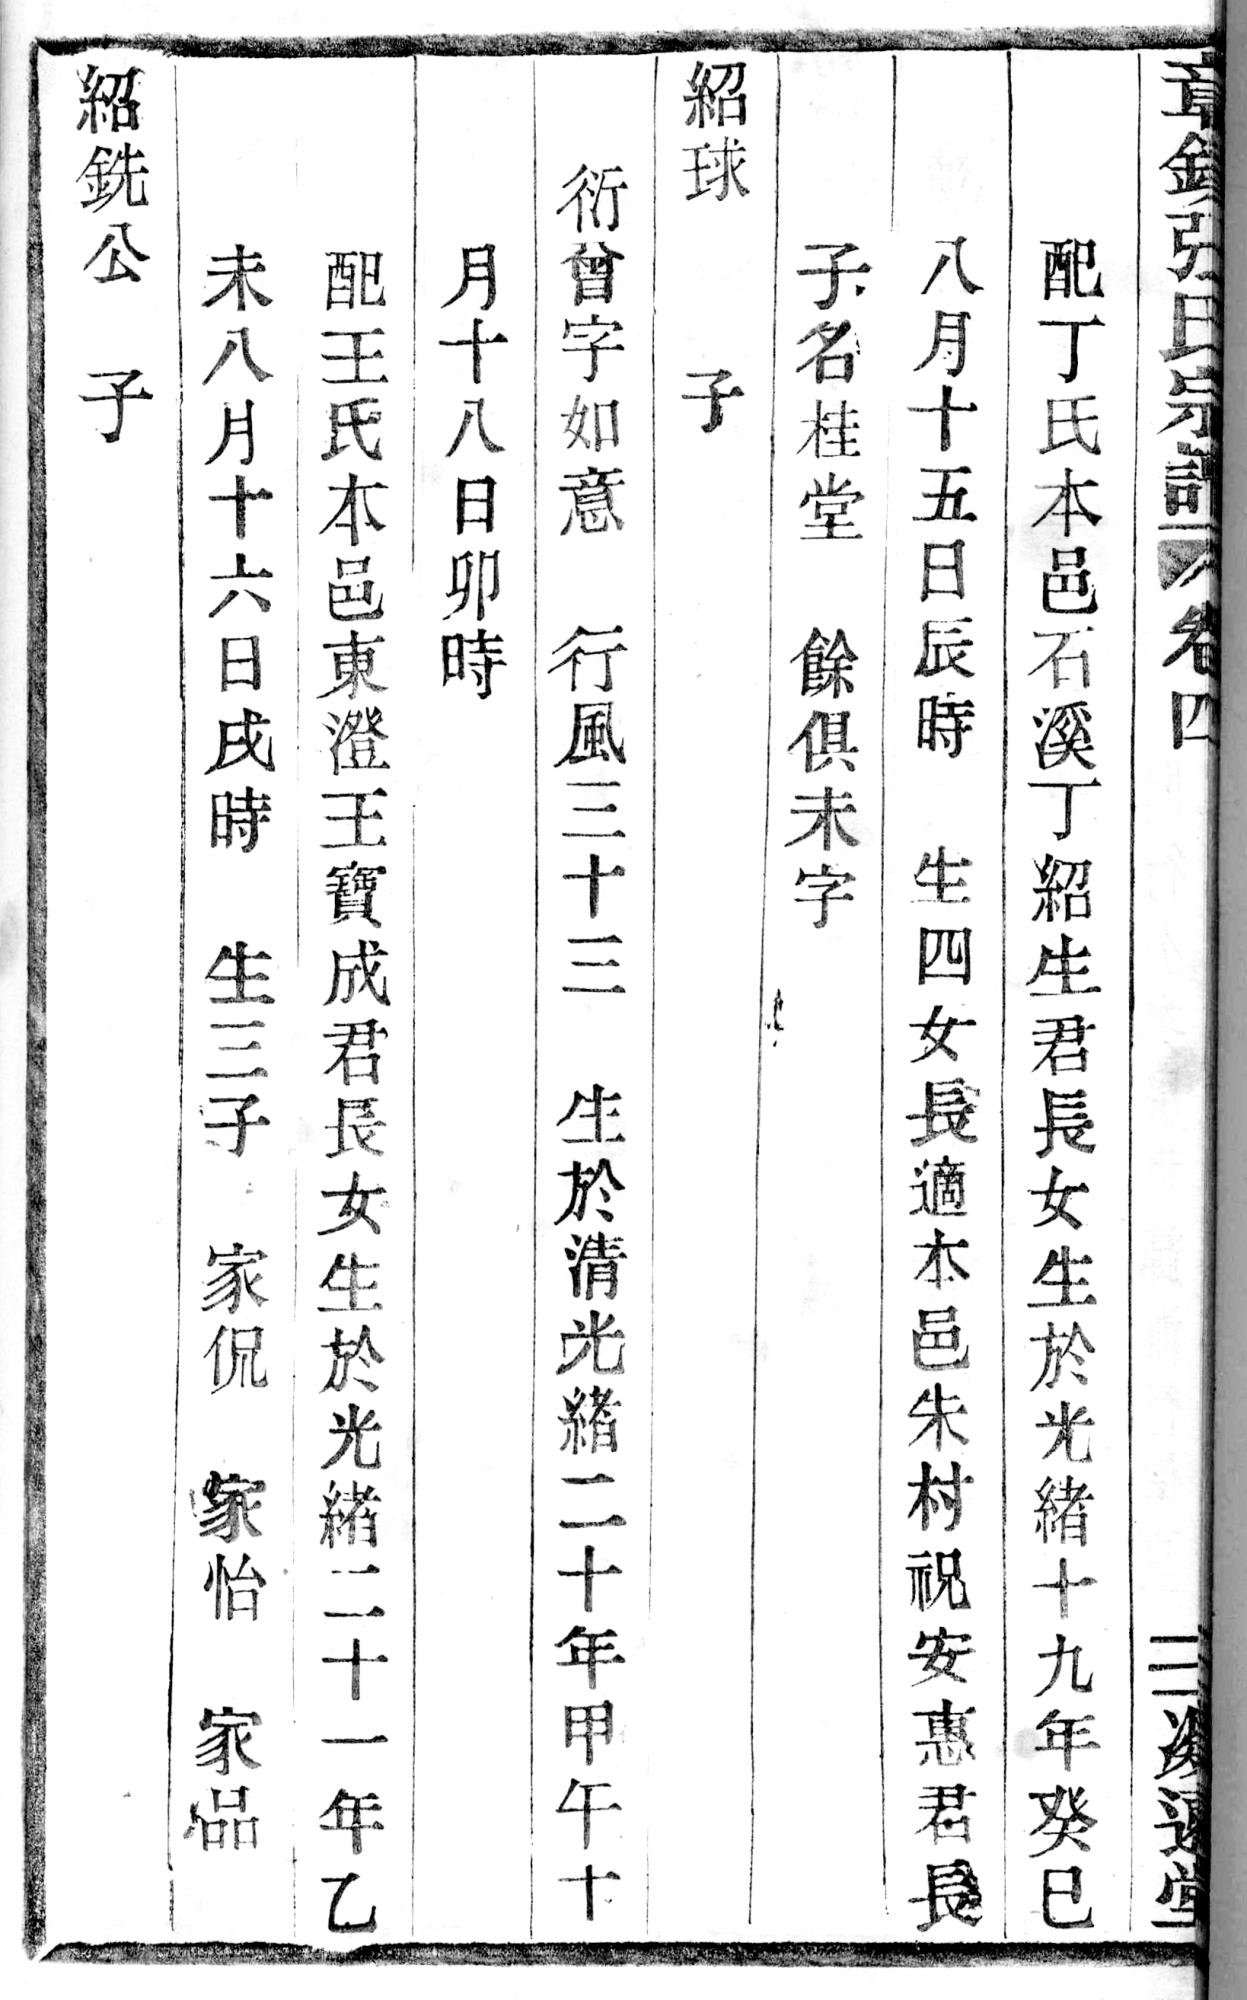 章鎮張氏宗譜 卷四 三 追遠堂
配丁氏本邑石溪丁紹生君長女生於光緒十九年癸巳
八月十五日辰時 生四女長適本邑朱村祝安惠君長
子名桂堂 餘俱未字
紹球 子
衍曾字如意 行風三十三 生於清光緒二十年甲午十
月十八日卯時
配王氏本邑東澄王寶成君長女生於光緒二十一年乙
未八月十六日戌時 生三子 家侃 家怡 家品
紹銑公 子